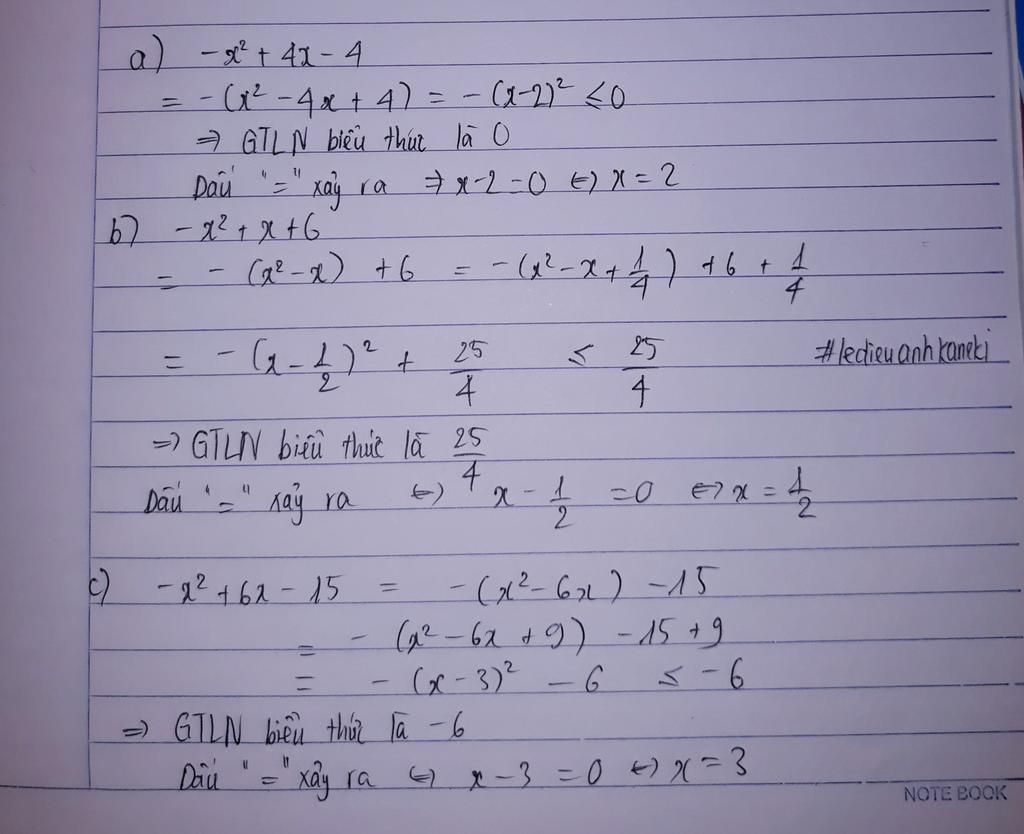 a) -x² + 4x - 4
= -(x² - 4x + 4) = -(x-2)² ≤ 0
⇒ GTLN biểu thức là 0
Dấu "=" xảy ra ⇒ x-2=0 ⇔ x = 2
b) -x² + x + 6
= -(x² - x) + 6 = -(x² - x + 1/4) + 6 + 1/4
= -(x - 1/2)² + 25/4 ≤ 25/4 #ledieuanhkaneki
⇒ GTLN biểu thức là 25/4
Dấu "=" xảy ra ⇔ x - 1/2 = 0 ⇔ x = 1/2
c) -x² + 6x - 15 = -(x² - 6x) - 15
= -(x² - 6x + 9) - 15 + 9
= -(x - 3)² - 6 ≤ -6
⇒ GTLN biểu thức là -6
Dấu "=" xảy ra ⇔ x - 3 = 0 ⇔ x = 3
NOTE BOOK